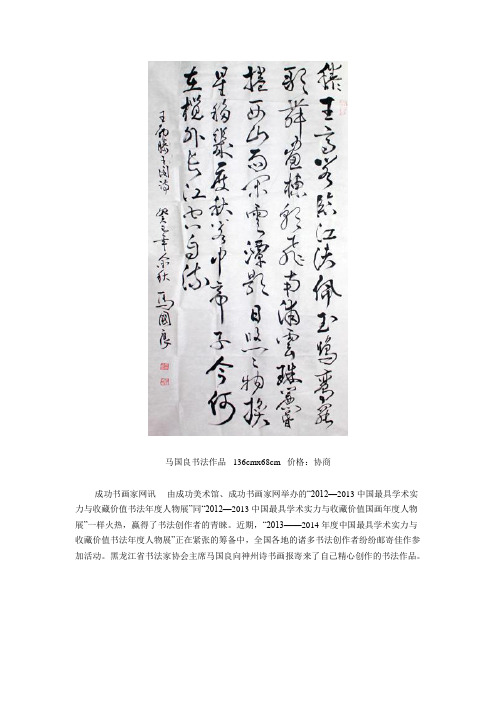 滕王高閣臨江渚佩玉鳴鸞罷
歌舞畫棟朝飛南浦雲珠簾暮
捲西山雨閑雲潭影日悠々物換
星移幾度秋閣中帝子今何
在檻外長江空自流
王勃滕王阁诗 癸巳年金秋 馬國良
马国良书法作品 136cmx68cm 价格：协商
成功书画家网讯 由成功美术馆、成功书画家网举办的“2012—2013中国最具学术实
力与收藏价值书法年度人物展”同“2012—2013中国最具学术实力与收藏价值国画年度人物
展”一样火热，赢得了书法创作者的青睐。近期，“2013——2014年度中国最具学术实力与
收藏价值书法年度人物展”正在紧张的筹备中，全国各地的诸多书法创作者纷纷邮寄佳作参
加活动。黑龙江省书法家协会主席马国良向神州诗书画报寄来了自己精心创作的书法作品。